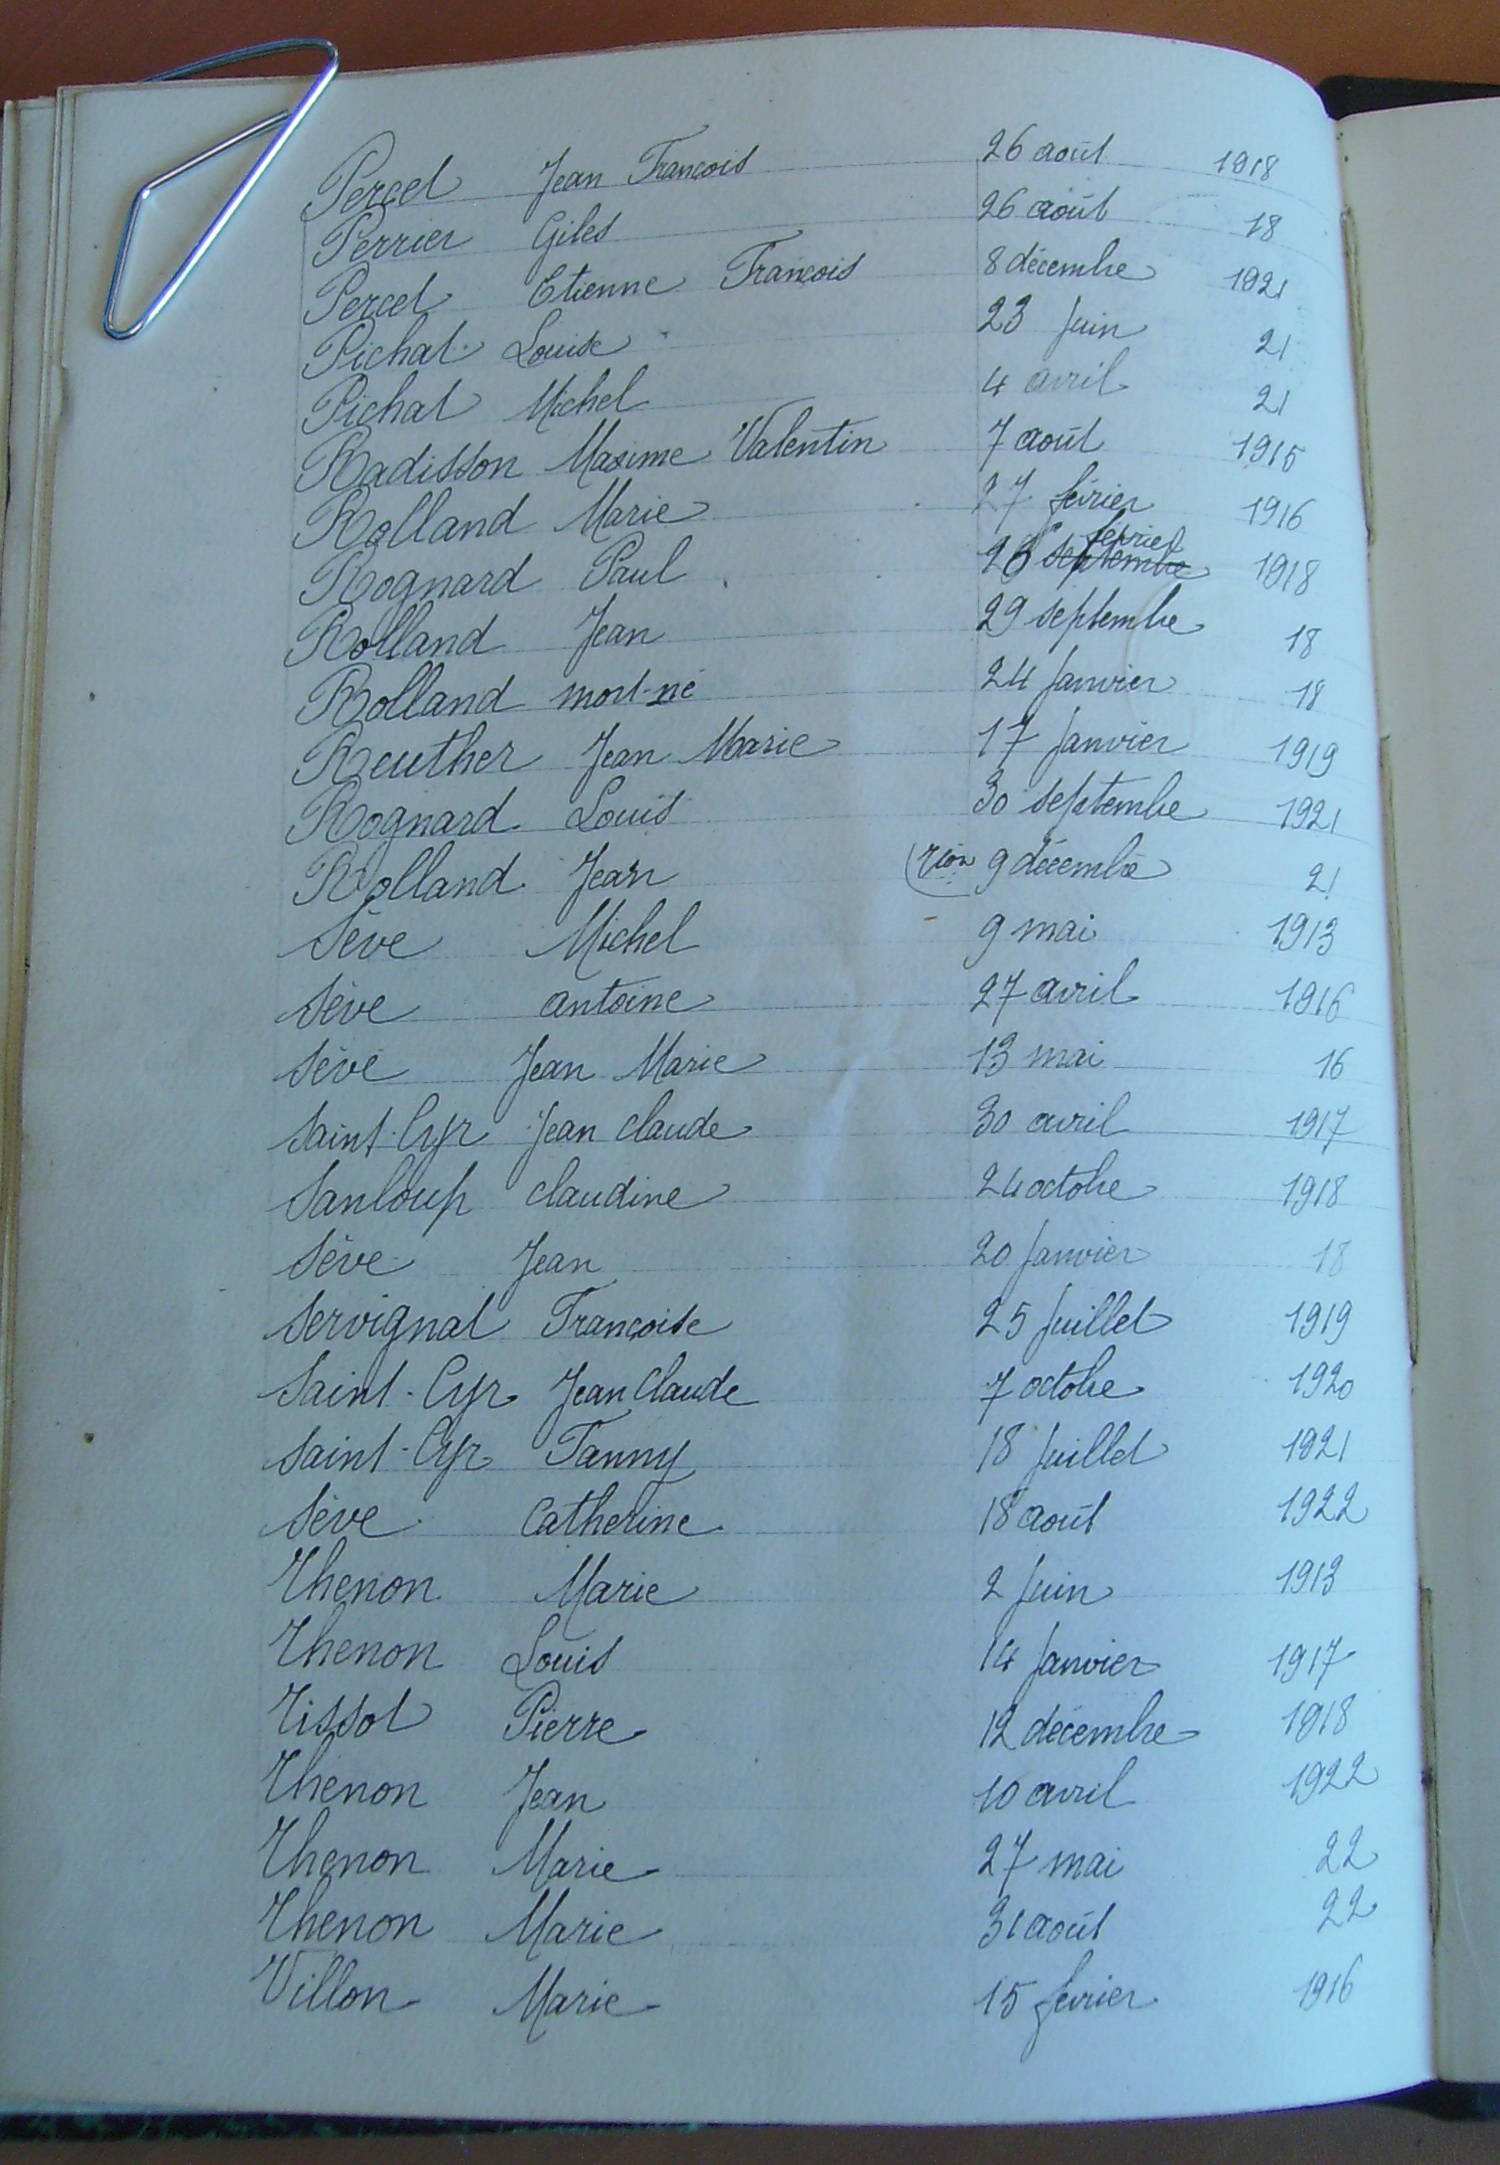 Percet Jean François 26 août 1918
Perrier Giles 26 août 18
Percet Etienne François 8 décembre 1921
Pichat Louise 23 Juin 21
Pichat Michel 4 avril 21
Radisson Maxime Valentin 7 août 1915
Rolland Marie 27 février 1916
février
Rognard Paul 28 septembre 1918
Rolland Jean 29 septembre 18
Rolland mort-né 24 Janvier 18
Reuther Jean Marie 17 Janvier 1919
Rognard Louis 30 septembre 1921
Rolland Jean 9 décembre 21
Sève Michel 9 mai 1913
Sève antoine 27 avril 1916
Sève Jean Marie 13 mai 16
Saint-Cyr Jean Claude 30 avril 1917
Sanloup Claudine 24 octobre 1918
Sève Jean 20 Janvier 18
Servignat Françoise 25 Juillet 1919
Saint-Cyr Jean Claude 7 octobre 1920
Saint-Cyr Fanny 18 Juillet 1921
Sève Catherine 18 août 1922
Thenon Marie 2 Juin 1913
Thenon Louis 14 Janvier 1917
Tissot Pierre 12 décembre 1918
Thenon Jean 10 avril 1922
Thenon Marie 27 mai 22
Thenon Marie 31 août 22
Villon Marie 15 février 1916